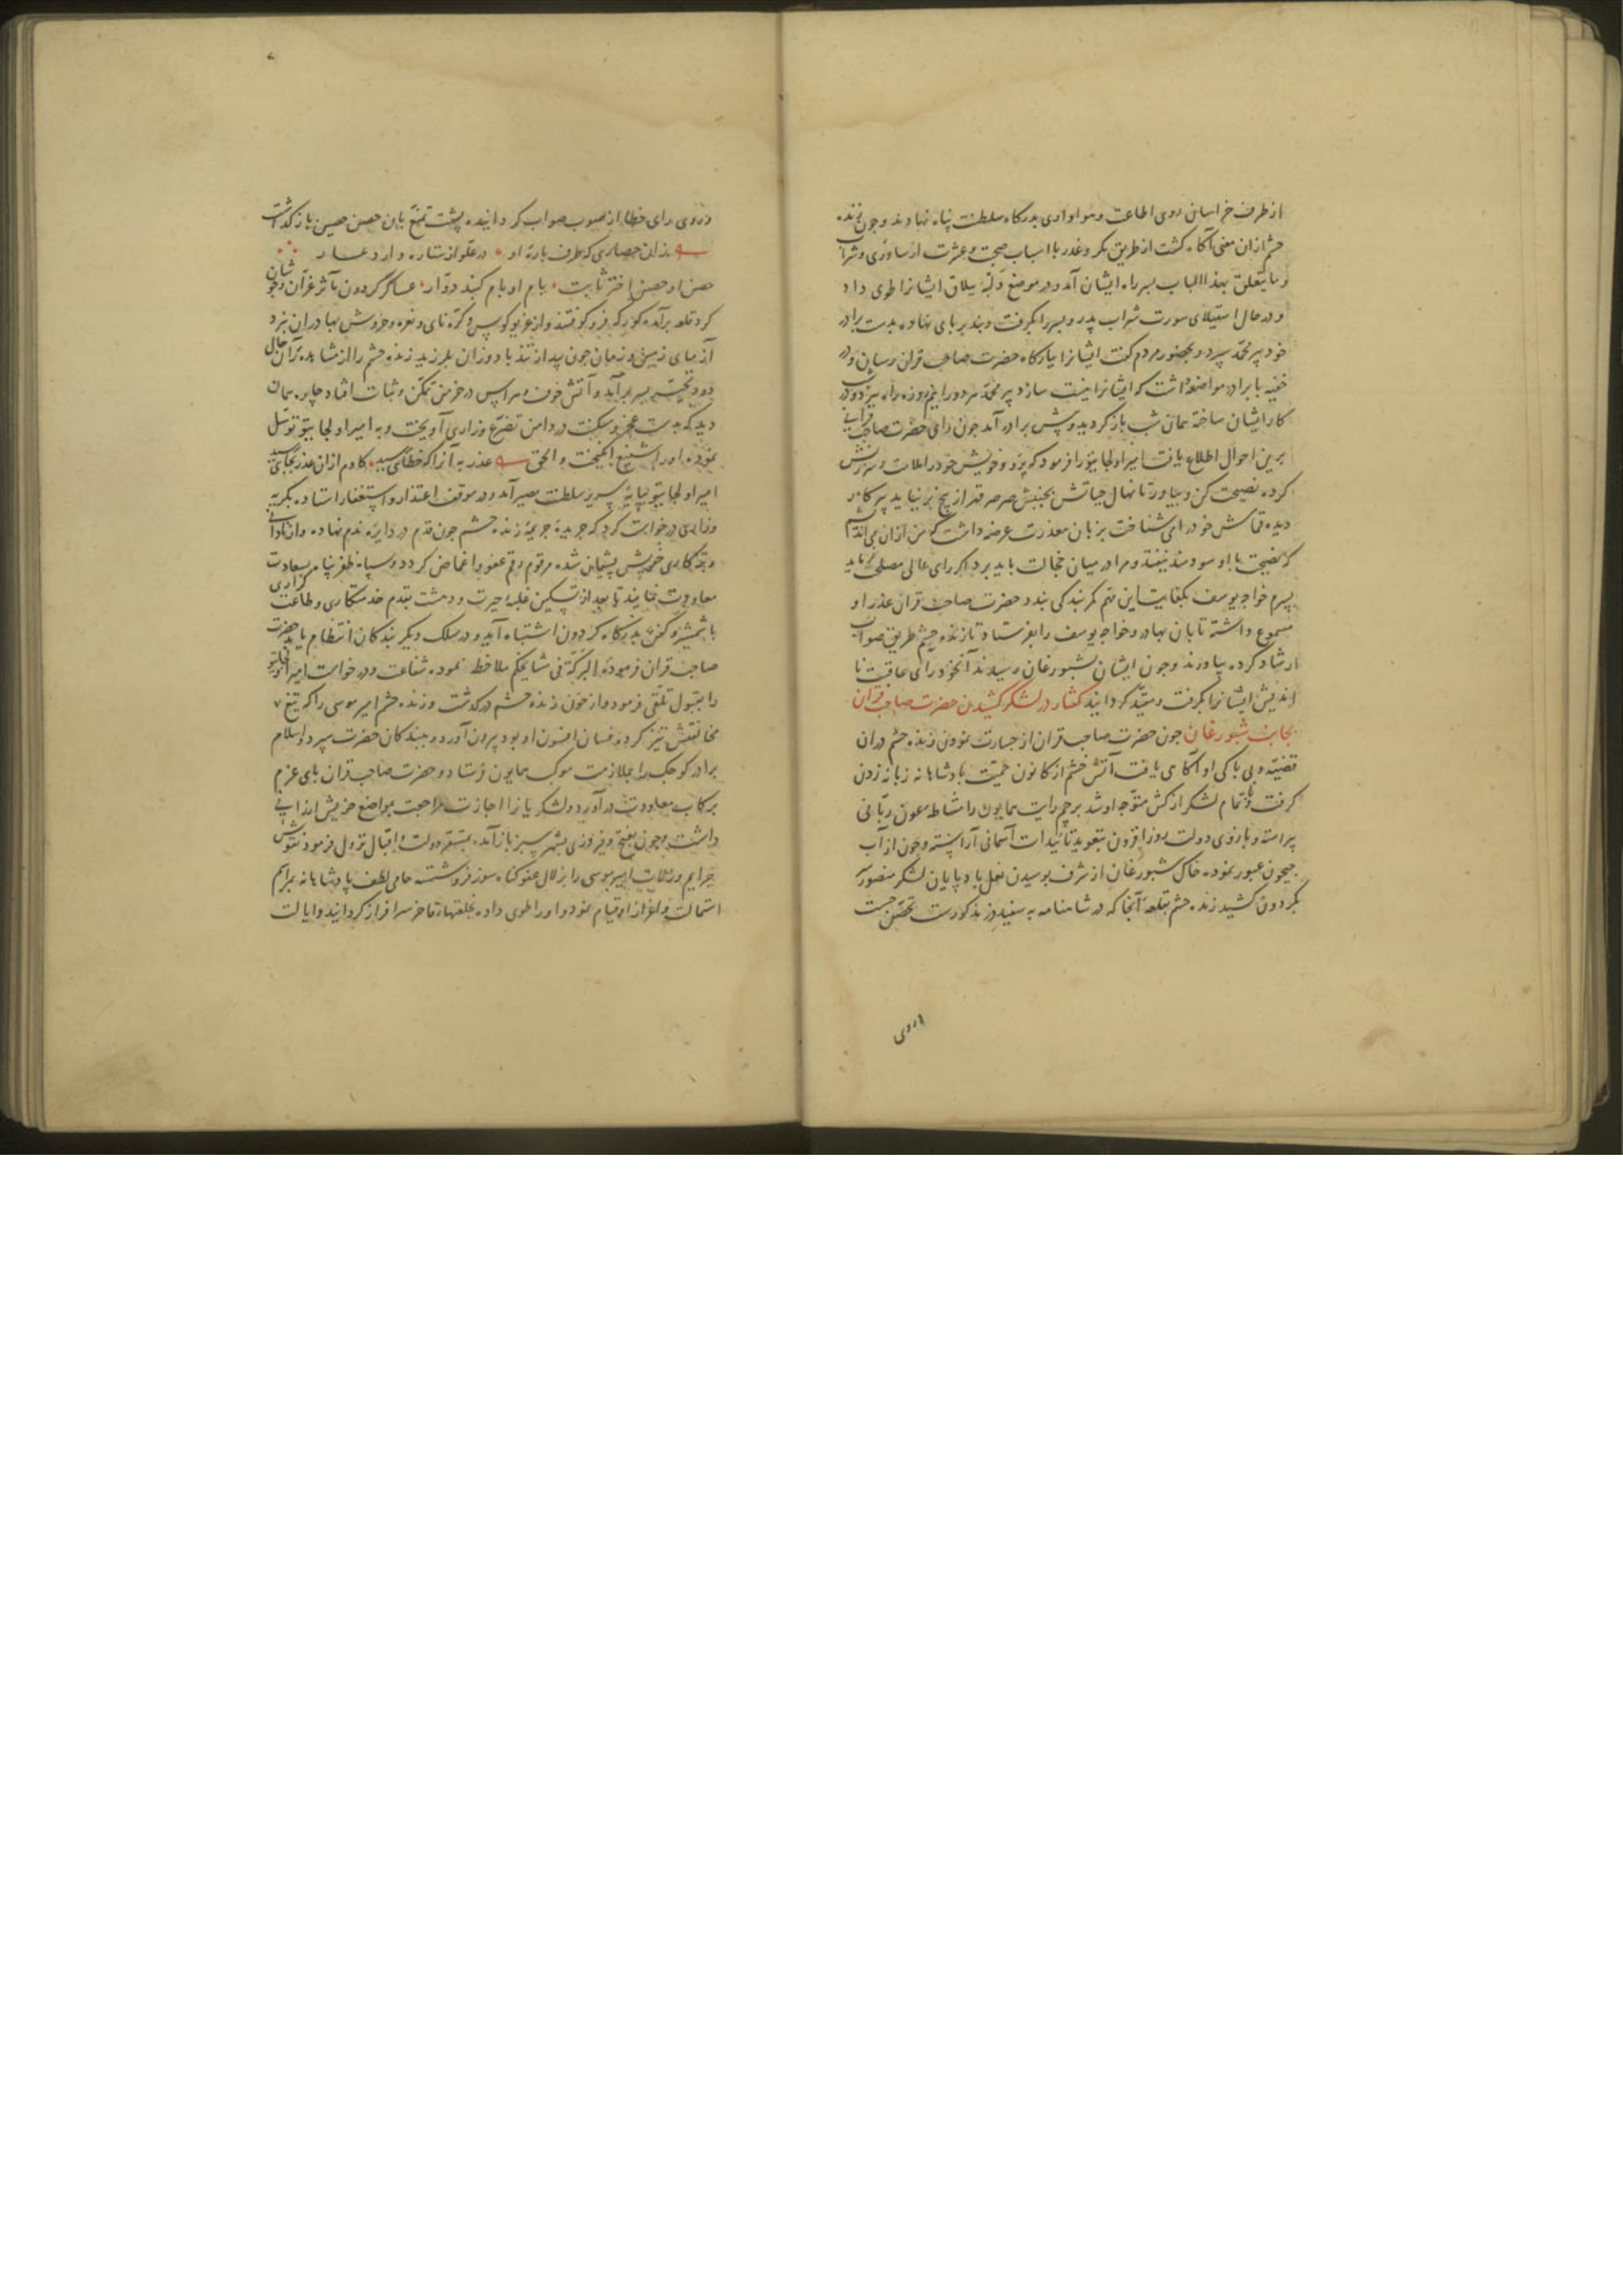 از طرف خراسان روی اطاعت و هواداری بدرکاه سلطنت پناه نهادند و جون زنده
حشم ازان معنی آکاه کشت از طریق مکر و غدر با اسباب صحبت و عشرت از ساوری و شراب
و ما یتعلق بهذا الباب بسر راه ایشان آمد و در موضع ییلاق ایشانرا طوی داد
و در حال استیلای سورت شراب پدر و پسر را بکرفت و بند بر پای نهاده بدست برادر
خود پیر محمد سپرد و بحضور مردم کفت ایشانرا ببارکاه حضرت صاحب قران رسان و در
خفیه با برادر مواضعه داشت که ایشانرا نیست سازد پیر محمد مردود را نیم روزه راه ببرد و در شب
کار ایشان ساخته همان شب باز کردید و پیش برادر آمد جون رای حضرت صاحب قرانی
برین احوال اطلاع یافت امیر اولجایتو را فرمود که برو و خویش خود را ملامت و سرزنش
کرده نصیحت کن و بیاور تا نهال حیاتش بجنبش صرصر قهر از بیخ برنیاید پیر کار
دیده قماش خود را می شناخت بزبان معذرت عرضه داشت که من ازان می اندیشم
که نصیحت با او سودمند نیفتد و مرا در میان خجالت باید برد اکر رای عالی مصلحت نماید
پسرم خواجه یوسف بکفایت این مهم کمر بندکی بندد حضرت صاحب قران عذر او
مسموع داشته تابان بهادر و خواجه یوسف را بفرستاد تا زنده حشم طریق صواب
ارشاد کرده بیاورند و جون ایشان بشبورغان رسیدند آنخود رای عاقبت نا
اندیش ایشانرا بکرفت و مقید کردانید کفتار در لشکر کشیدن حضرت صاحب قران
بجانب شبورغان جون حضرت صاحب قران از جسارت نمودن زنده حشم دران
قضیه و بی باکی او آکاهی یافت آتش خشم از کانون حمیت پادشاهانه زبانه زدن
کرفت و با تمام لشکر از کش متوجه او شد پرچم رایت همایون را مشاطه عون ربانی
پیراسته و بازوی دولت روز افزون بتعویذ تائیدات آسمانی آراسته و جون از آب
جیحون عبور نموده خاک شبورغان از شرف بوسیدن نعل بادپایان لشکر منصور سر
بکردون کشید زنده حشم بقلعه آنجا که در شاهنامه به سفیددز مذکورست تحصن جست
وروی
وروی رای خطا از صوب صواب کردانیده پشت تمنع بان حصن حصین باز کذاشت
بذان حصاری که طرف باره او در علو از ستاره دارد عار
حصن او حصن اختر ثابت بام او بام کنبد دوار عساکر کردون مآثر غران و جوشان
کرد قلعه برآمده کورکه فرو کوفتند و از غریو کوس و کره نای و نعره و خروش بهادران نبرد
آزمای زمین و زمان جون بید از تند باد وزان بلرزید زنده حشم را از مشاهده آن حال
دود تحیر بسر برآمد و آتش خوف و هراس در خرمن تمکن و ثبات افتاد چاره همان
دید که بدست عجز و مسکنت در دامن تضرع و زاری آویخت و به امیر اولجایتو توسل
نموده او را شفیع انکیخت و الحق عذر به آنرا که خطائی رسید کادم ازان عذر بجائی رسید
امیر اولجایتو بپایه سریر سلطنت مصیر آمد و در موقف اعتذار و استغفار استاده بکریه
وزاری درخواست کرد که جریده جریمه زنده حشم جون قدم در دایره ندم نهاده و از نادانی
و تبه کاری خویش پشیمان شده مرقوم رقم عفو و اغماض کردد و سپاه ظفر پناه بسعادت
معاودت نمایند تا بعد از تسکین غلبه حیرت و دهشت بقدم خدمتکاری و طاعت کزاری
با شمشیر و کفن بدرکاه کردون اشتباه آید و در سلک دیکر بندکان انتظام یابد حضرت
صاحب قران فرموده البرکة فی مشایخکم ملاحظه نموده شفاعت و درخواست امیر اولجایتو
را بقبول تلقی فرمود و از خون زنده حشم درکذشت و زنده حشم امیر موسی را که تیغ
مخالفتش تیز کرده فسان افسون او بود بیرون آورد و ببندکان حضرت سپرد و اسلام
برادر کوجک را بملازمت موکب همایون فرستاد و حضرت صاحب قران پای عزم
برکاب معاودت درآورد و لشکریانرا اجازت مراجعت بمواضع خویش ارزانی
داشت و جون بفتح و فیروزی بشهر سبز بازآمد بمستقر دولت و اقبال نزول فرمود نقوش
جرایم و زلات امیر موسی را بزلال عفو کناه سوز فروشسته حامی لطف پادشاهانه بمراسم
استمالت و اعزاز او قیام نمود و او را طوی داده بخلعتهاء فاخر سرافراز کردانید و ایالت